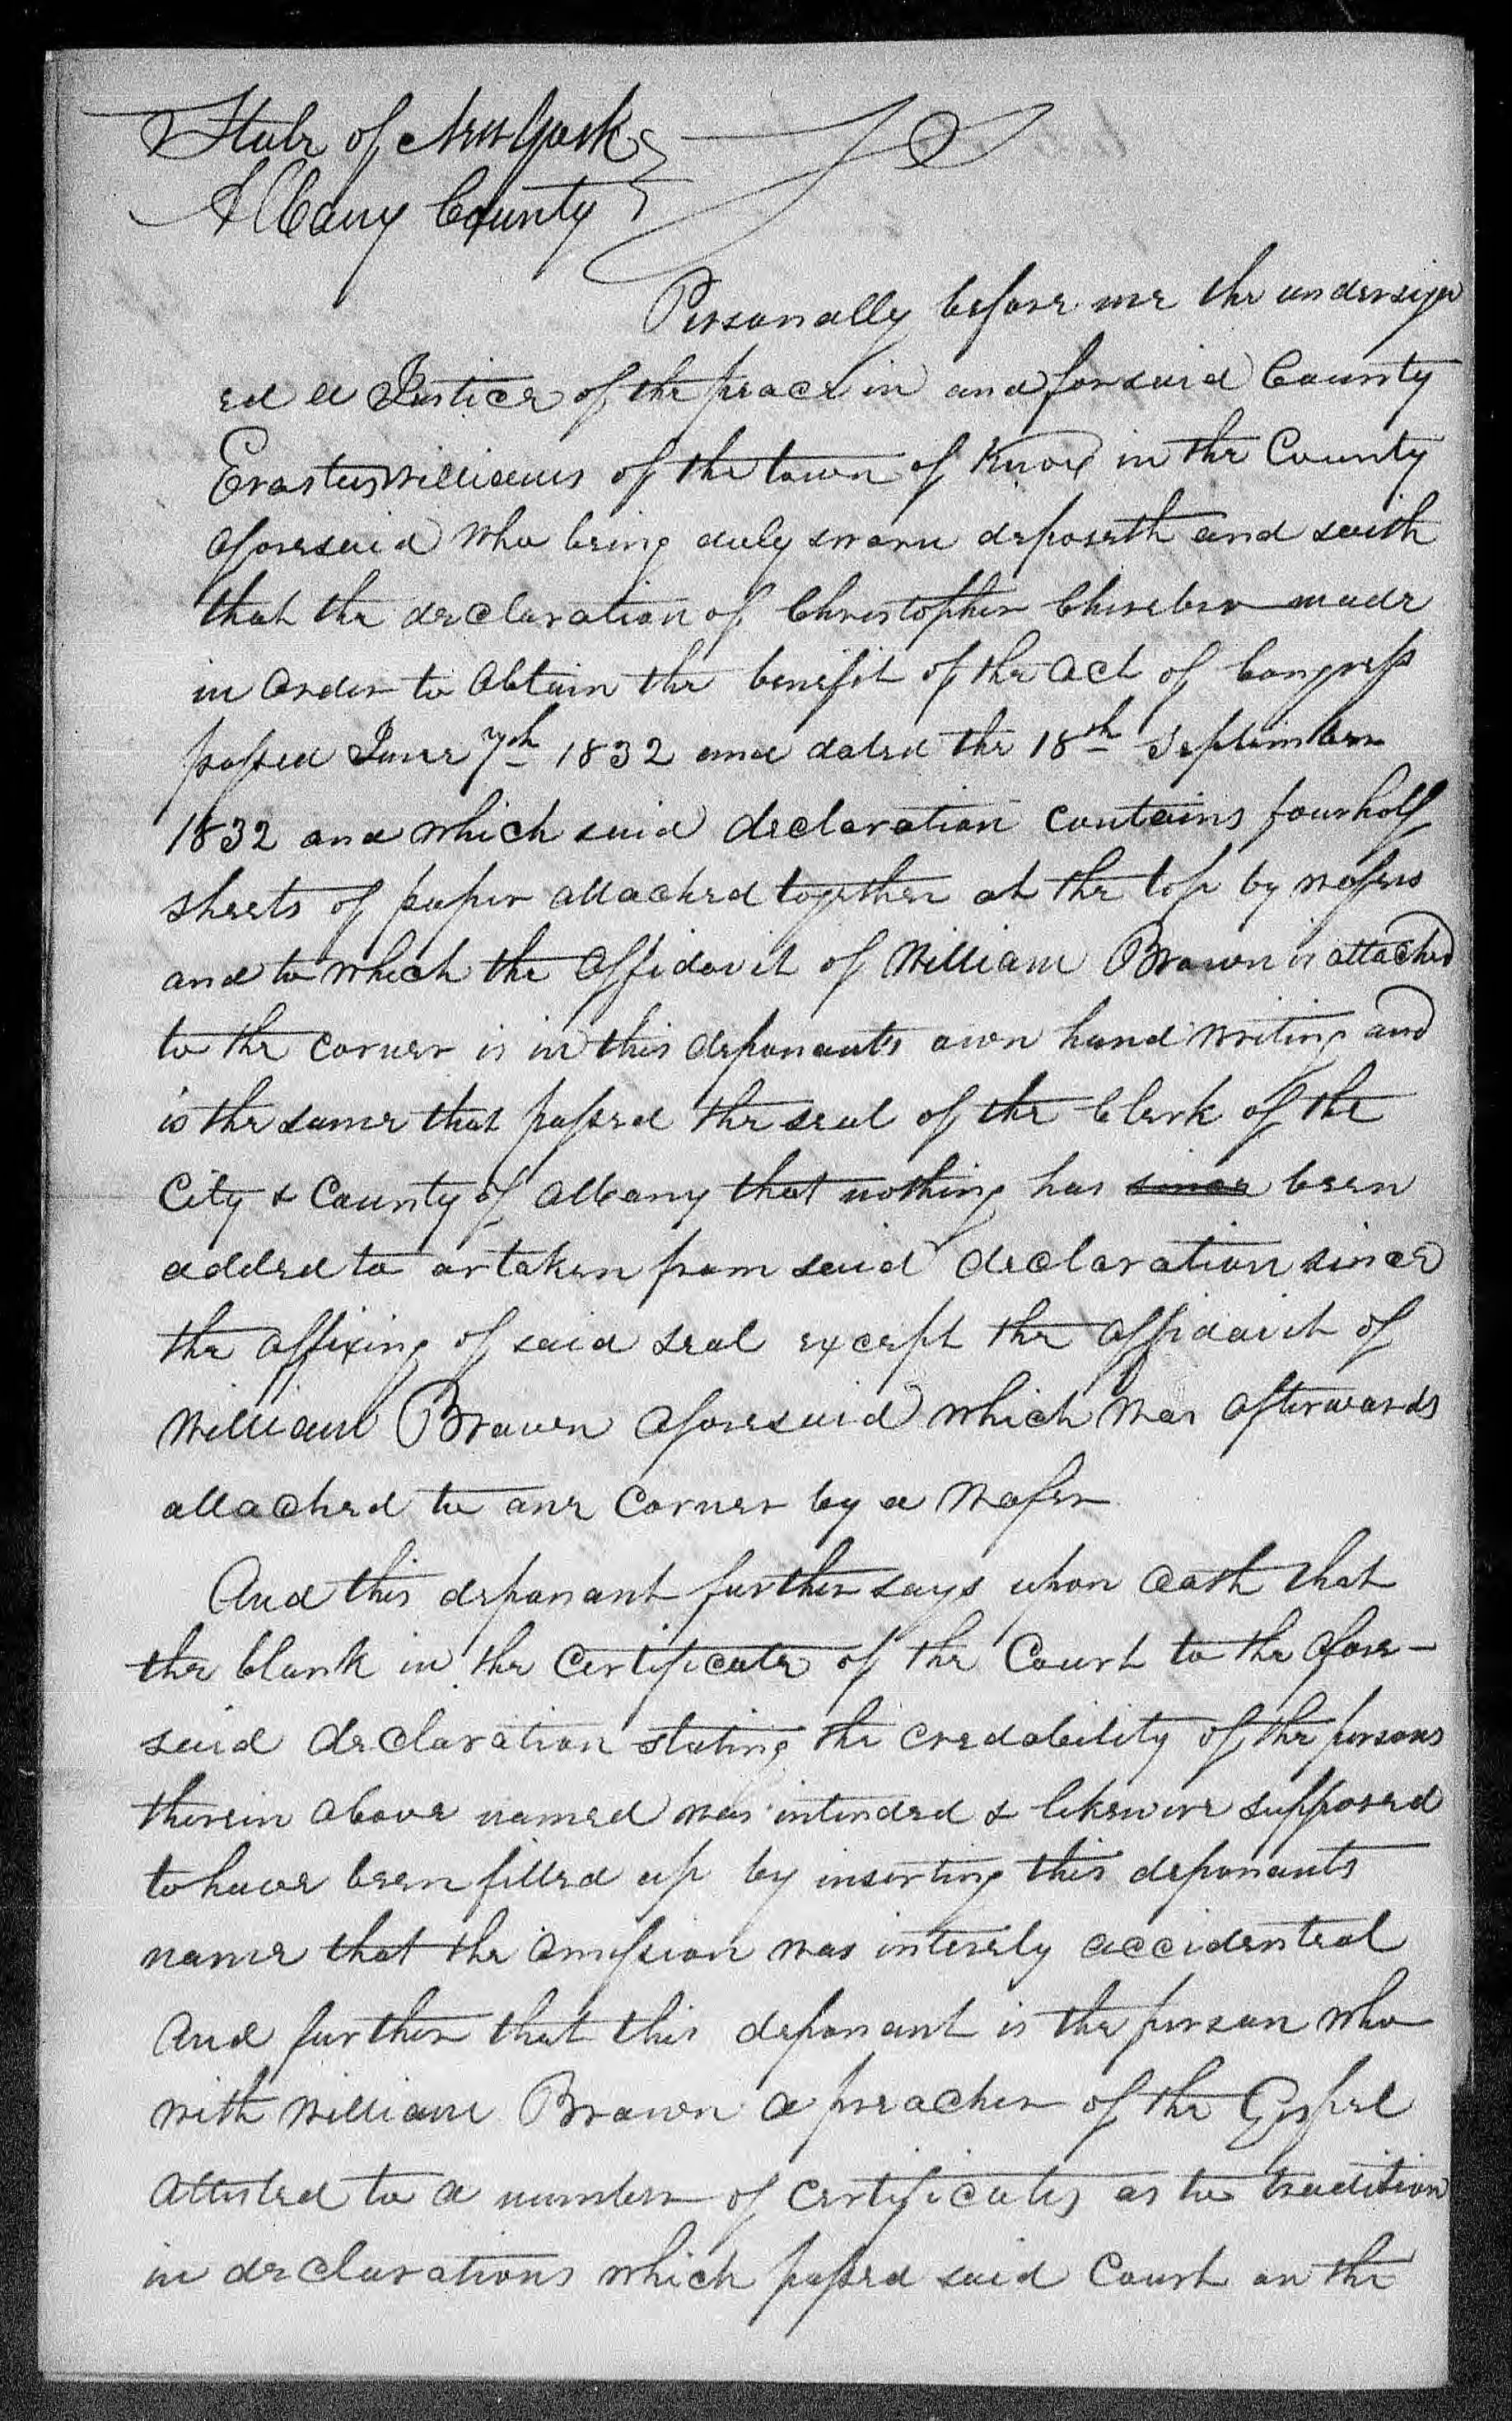 State of New York }
Albany County } SS
Personally before me the undersign
ed a Justice of the peace in and for said County
Erastus Williams of the town of Knox in the County
aforesaid who being duly sworn deposeth and saith
that the declaration of Christopher made
in order to obtain the benefit of the act of Congress
passed June 7th 1832 and dated the 18th September
1832 and which said declaration contains four half
sheets of paper attached together at the top by wafers
and to which the affidavit of William Brown is attached
to the corner is in this deponants own hand writing and
is the same that passed the seal of the Clerk of the
City & County of Albany that nothing has since been
added to or taken from said declaration since
the affixing of said seal except the affidavit of
William Brown aforesaid which was afterwards
attached to one corner by a wafer
And this deponant further says upon oath that
the blank in the Certificate of the Court to the afore-
said declaration stating the credability of the persons
therein above named was intended & likewise supposed
to have been filled up by inserting this deponants
name that the omission was intirely accidental
And further that this deponant is the person who
with William Brown a preacher of the Gospel
attested to a number of certificates as to tradition
in declarations which passed said Court on the